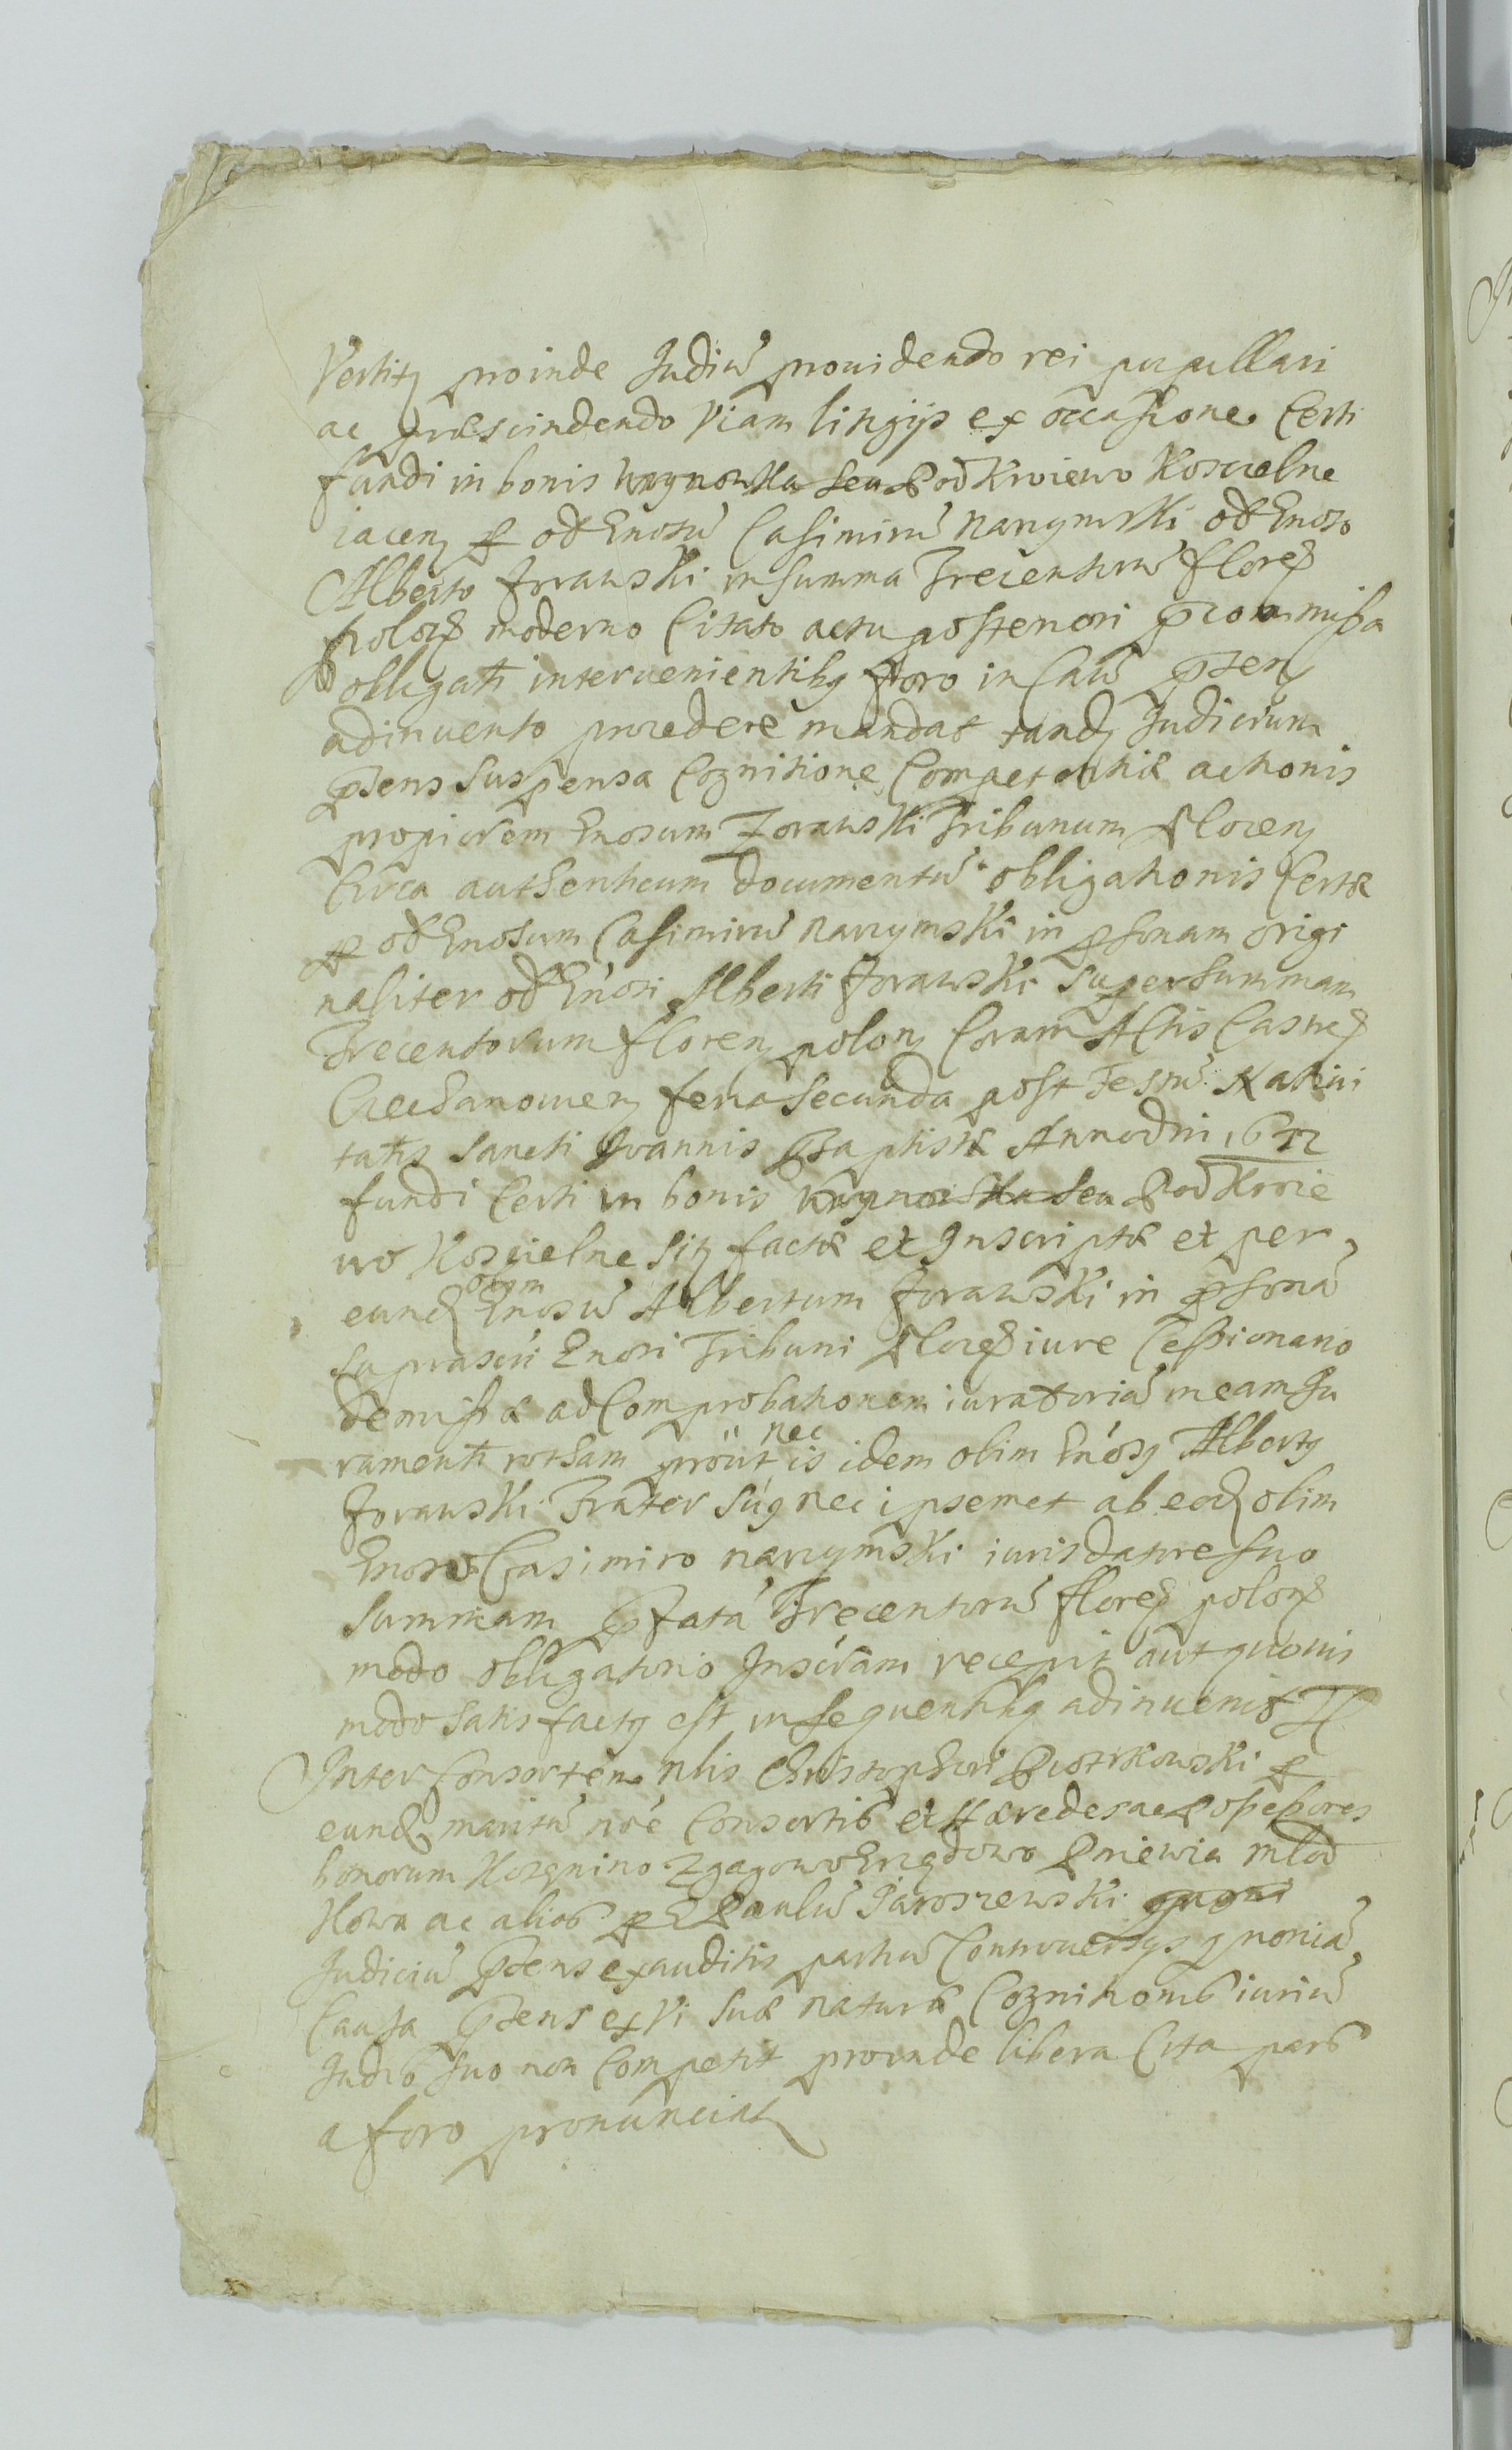 Vertitz proinde Judiū prouidendo rei pupullari
ac præscindendo Viam litigijs ex occasione Certi
fundi in bonis seu Podkrviewo Koscielne
iacenz p od Enosū Casimirū Narzymski od Enoso
Alberto Zorawski in summa Trecentorū flore
polo moderno Citato actu posteriori promissa
obligati interuenientibq foro in Caū psenz
adinuento procedere mandat tandz Judicium
psens suspensa Cognitione Competentiæ actionis
propiorem Enosum Zorawski Tribunum Plocenz
Circa authenticum documentū obligationis Certæ
p od Enosum Casimirū Narzymski in psonam origi
naliter od Enosi Alberti Zorawski super summam
Trecentorum florenz polonz Coram Actis Castre
Ciechanouienz feria secunda post Festū Natiui
tatis Sancti Joannis Baptistæ Anno dni
fundi Certi in bonis seu Podkrvie
wo Koscielne sitz factæ et Inscriptæ et per
eund olim Enosū Albertum Zorawski in psona
suprascri Enosi Tribuni Ploce iure Cessionario
demissæ ad Comprobationem iuratoriā in eam Ju
ramenti rotham prout nec is idem olim Enosq Albertq
Zorawski Frater suq nec ipsemet ab eod olim
Enoso Casimiro Narzymski iuris datore suo
summam pfatā Trecentorū flore polo
modo obligatorio Inscram recepit aut quouis
modo satisfactq est in sequentibq adinuenit
Inter Consortem Nlis Christophori Piotrkowski p
eund maritū Consortis et Hæredes ac possessores
bonorum Pniewia Mlod
kowa ac alios p E Paulū Jaroszewski
Judiciū psens exauditis partiū Controuersys quoniā
Causa psens ex Vi suæ naturæ Cognitionis iuriū
Judio suo non Competit proinde libera Cita pars
a foro pronunciat